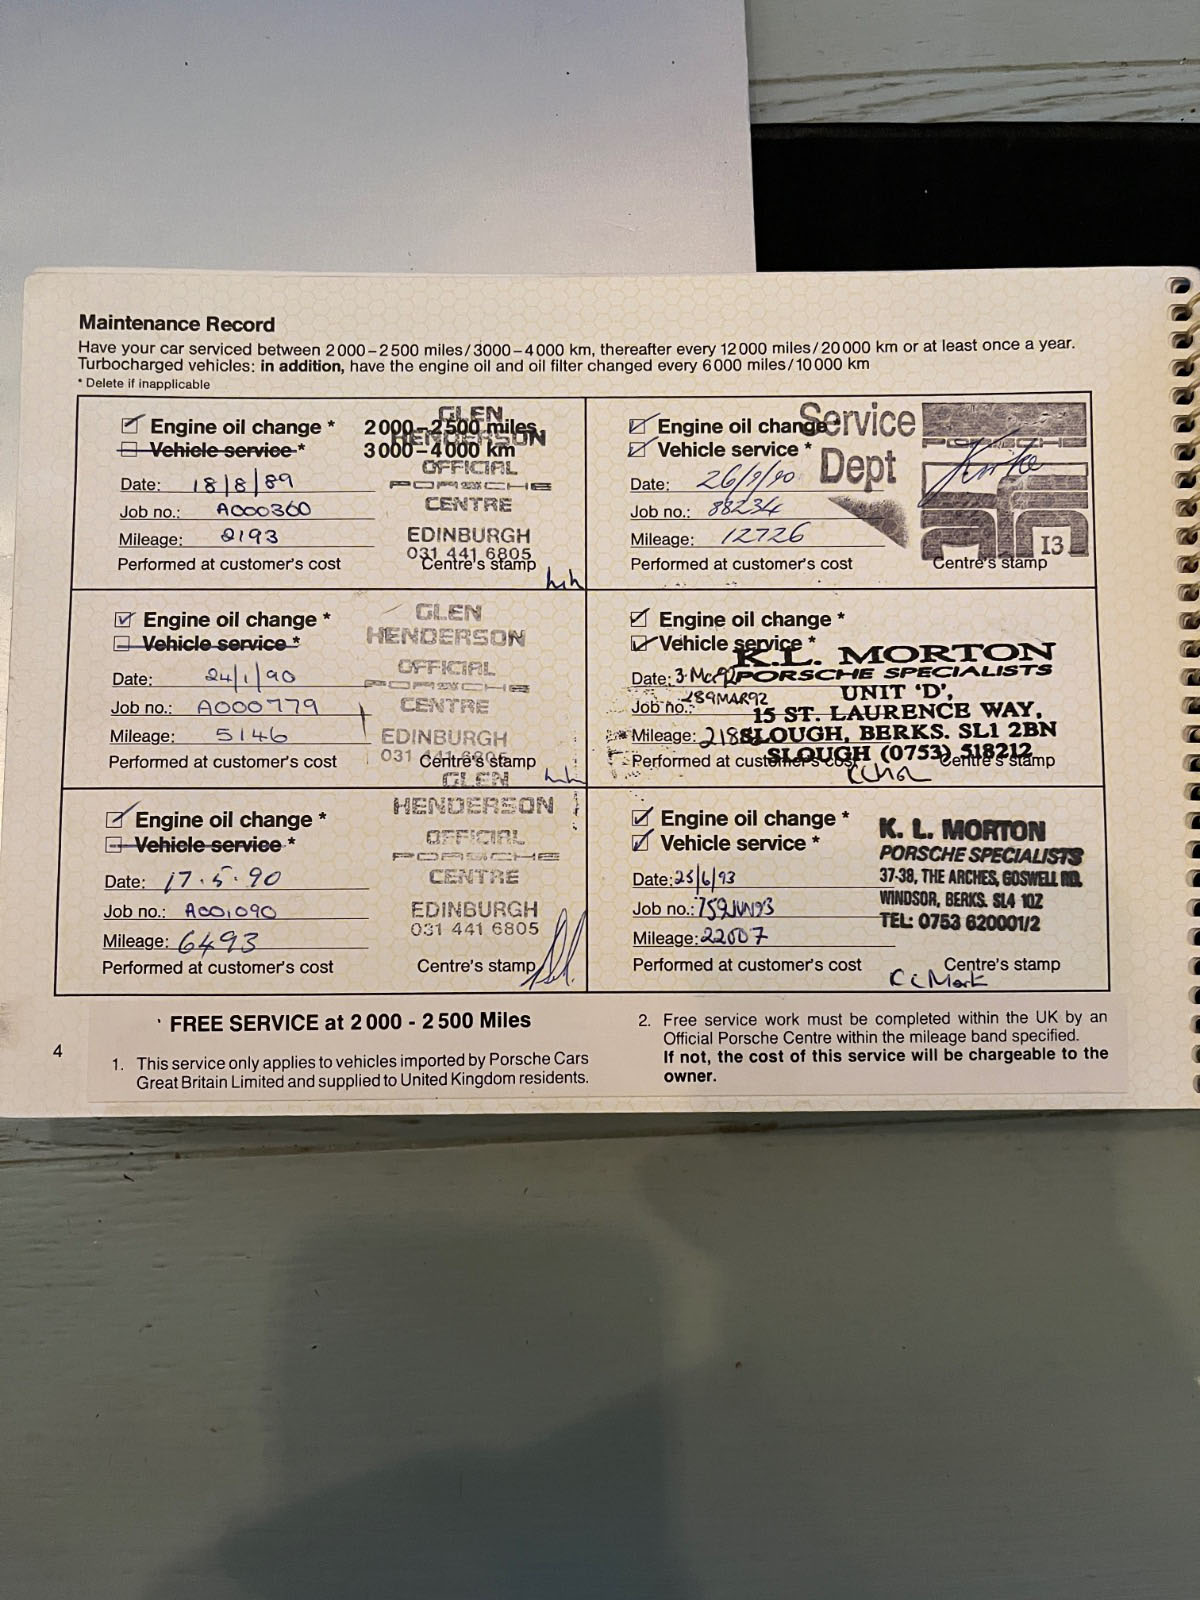 Maintenance Record
Have your car serviced between 2000–2500 miles/3000–4000 km, thereafter every 12000 miles/20000 km or at least once a year.
Turbocharged vehicles: in addition, have the engine oil and oil filter changed every 6000 miles/10000 km
* Delete if inapplicable
Engine oil change * 2000–2500 miles
Vehicle service * 3000–4000 km
Date: 18/8/89
Job no.: A000360
Mileage: 2193
Performed at customer's cost
Centre's stamp
GLEN
HENDERSON
OFFICIAL
PORSCHE
CENTRE
EDINBURGH
031 441 6805
Engine oil change *
Vehicle service *
Date: 24/1/90
Job no.: A000779
Mileage: 5146
Performed at customer's cost
Centre's stamp
GLEN
HENDERSON
OFFICIAL
PORSCHE
CENTRE
EDINBURGH
031 441 6805
Engine oil change *
Vehicle service *
Date: 17.5.90
Job no.: A001090
Mileage: 6493
Performed at customer's cost
Centre's stamp
GLEN
HENDERSON
OFFICIAL
PORSCHE
CENTRE
EDINBURGH
031 441 6805
Engine oil change *
Vehicle service *
Date: 26/9/90
Job no.: 88234
Mileage: 12726
Performed at customer's cost
Centre's stamp
Service
Dept
PORSCHE
afn
I3
Engine oil change *
Vehicle service *
Date: 3 Mar 92
Job no.: 289MAR92
Mileage:
Performed at customer's cost
Centre's stamp
K.L. MORTON
PORSCHE SPECIALISTS
UNIT 'D',
15 ST. LAURENCE WAY,
SLOUGH, BERKS. SL1 2BN
SLOUGH (0753) 518212
Engine oil change *
Vehicle service *
Date: 25/6/93
Job no.: 759JUN93
Mileage: 22007
Performed at customer's cost
Centre's stamp
K. L. MORTON
PORSCHE SPECIALISTS
37-38, THE ARCHES, GOSWELL RD.
WINDSOR, BERKS. SL4 1QZ
TEL: 0753 620001/2
FREE SERVICE at 2 000 - 2 500 Miles
1. This service only applies to vehicles imported by Porsche Cars
Great Britain Limited and supplied to United Kingdom residents.
2. Free service work must be completed within the UK by an
Official Porsche Centre within the mileage band specified.
If not, the cost of this service will be chargeable to the
owner.
4